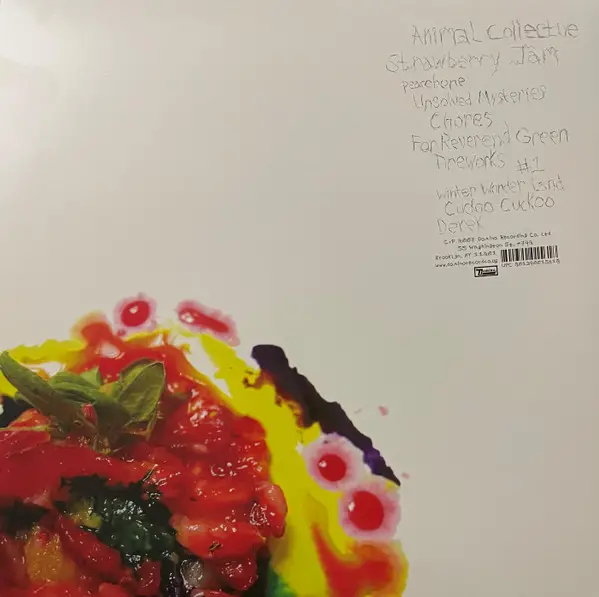 Animal Collective
Strawberry Jam
Peacebone
Unsolved Mysteries
Chores
For Reverend Green
Fireworks
#1
Winter Wonder Land
Cuckoo Cuckoo
Derek
C+P 2007 Domino Recording Co. Ltd.
55 Washington St.
Brooklyn, NY 11201